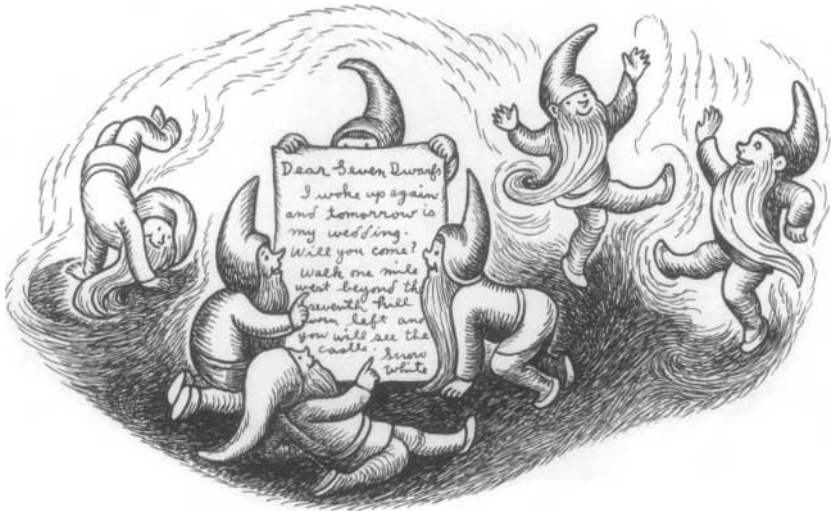 Dear Seven Dwarfs
I woke up again
and tomorrow is
my wedding.
Will you come?
Walk one mile
west beyond th
seventh hill
turn left and
you will see the
castle.
Snow
White